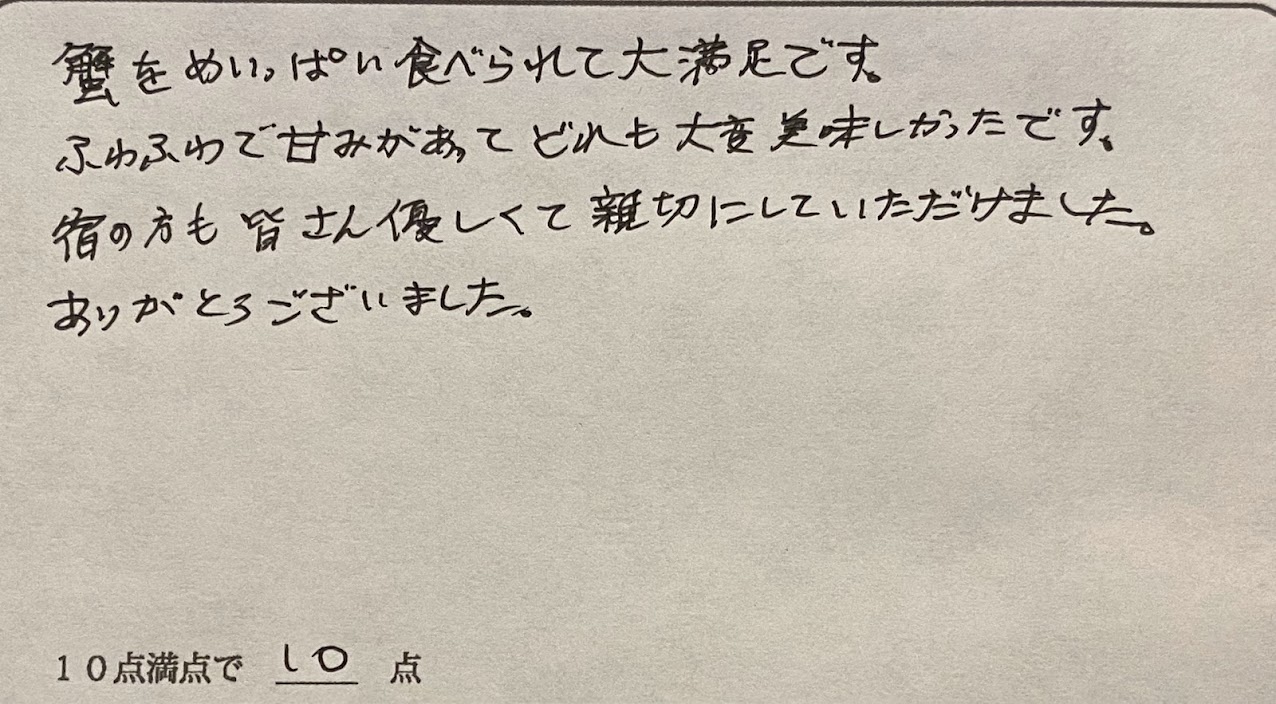 蟹をめいっぱい食べられて大満足です。
ふわふわで甘みがあってどれも大変美味しかったです。
宿の方も皆さん優しくて親切にしていただけました。
ありがとうございました。
10点満点で 10 点